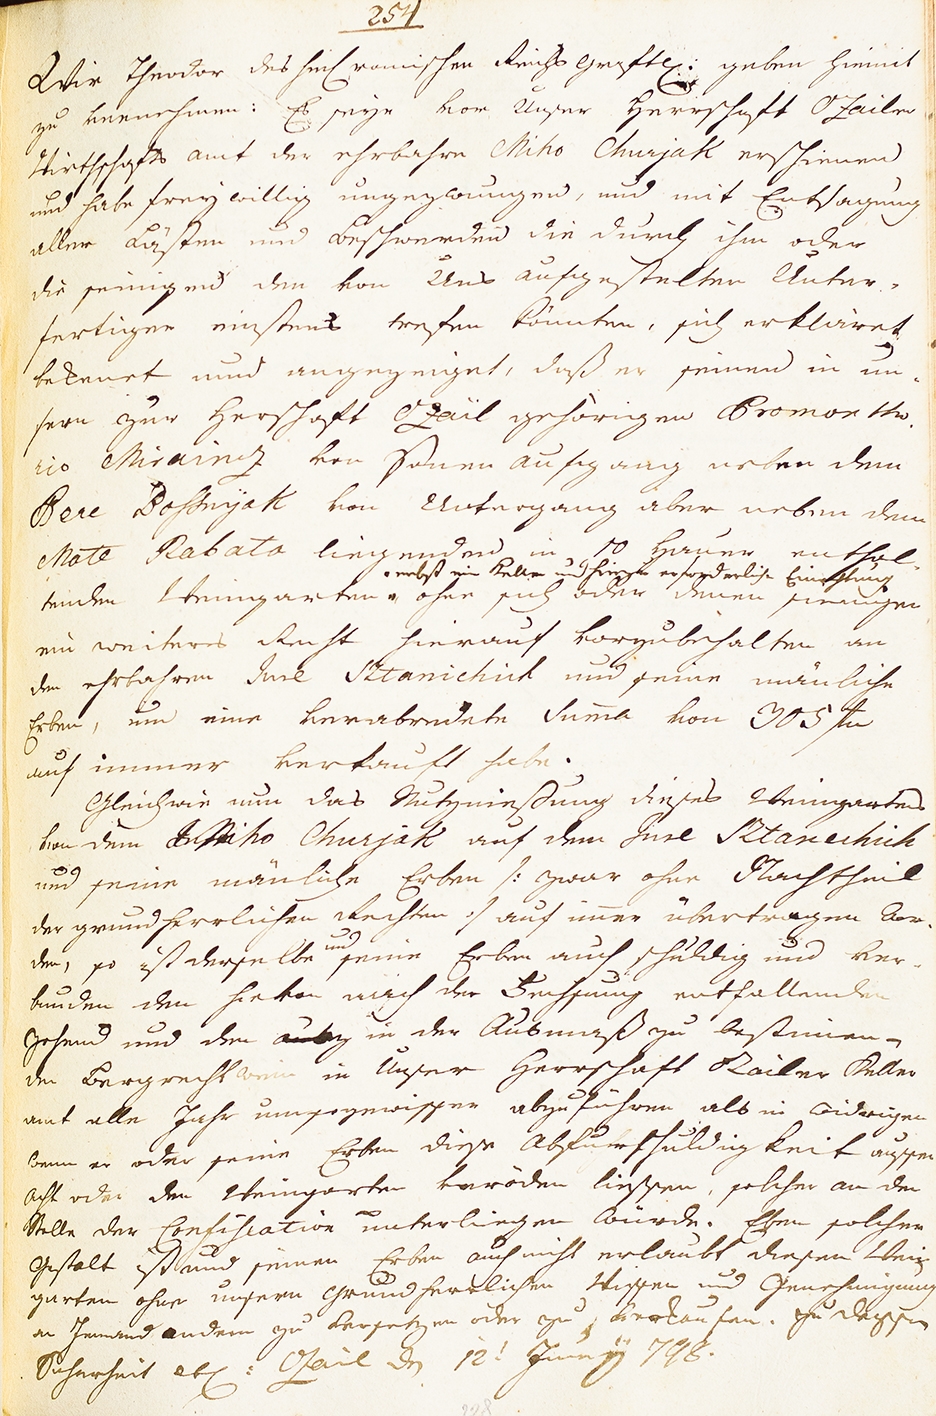 254
Wir Theodor des heil romischen Reichs Graf etc: geben hiemit
zu vernehmen: Es seye vor Unser Herrschaft Ozailer
Wirthschafts amt der ehrbahre Miho Churjak erschienen
und habe freywillig ungezwungen, und mit Entsagung
aller Lästen und Beschwerden die durch ihm oder
die seinigen den von Uns aufgestelten Unter-
fertigen einstens trefen könnten, sich erkläret
bekenet und angezeiget, daß er seinen in un-
sern zur Herschaft Ozail gehörigen Promontho-
rio Mirainez von Sonen aufgang neben dem
Pere Bosnyak von Untergang aber neben dem
Mate Rabata liegenden in 10 Hauer enthal-
nebst ein Keller und hierzu erforderliche Einrichtung
tenden Weingarten ohne sich oder denen seinigen
ein weiteres Recht hierauf vorzubehalten an
den ehrbahren Jure Sztanichich und seine mänliche
Erben, um eine verabredete Suma von 305 fn
auf immer verkauft habe.
Gleichwie nun das Nutzniessung dieses Weingartens
von dem Miho Churjak auf dem Jure Sztanechich
und seine mänliche Erben /: zwar ohne Nachtheil
der grundherrlichen Rechten :/ auf imer übertragen wor-
den, so ist derselbe und seine Erben auch schuldig und ver-
bunden den hievon nach der Fechsung entfallenden
Zehend und den in der Ausmaß zu bestimen-
den Bergrecht wein in Unser Herrschaft Ozailer Keller
amt alle Jahr umsogewisser abzuführen als in widrigen
wenn er oder seine Erben diese Abfuhrschuldigkeit aussen
Acht oder den Weingarten veröden liessen, solcher an der
Stelle der Confiscation unterliegen würde. Eben solcher
gestalt ist und seinen Erben auch nicht erlaubt diesen Wein
garten ohne unsern Grundherrlichen Wissen und Genehmigung
an Jemand andern zu versetzen oder zu verkaufen. zu dessen
Sicherheit etc: Ozail den 12t Juny 798.